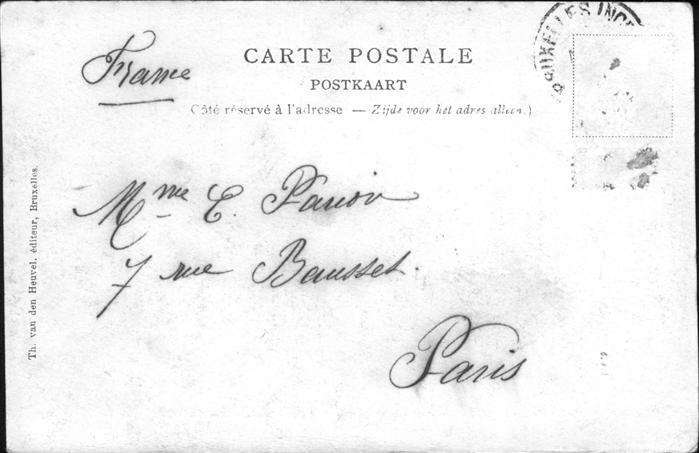 France
CARTE POSTALE
POSTKAART
(Côté réservé à l'adresse — Zijde voor het adres alleen.)
BRUXELLES
Mme E.
7 rue Bausset.
Paris
Th. van den Heuvel, éditeur, Bruxelles